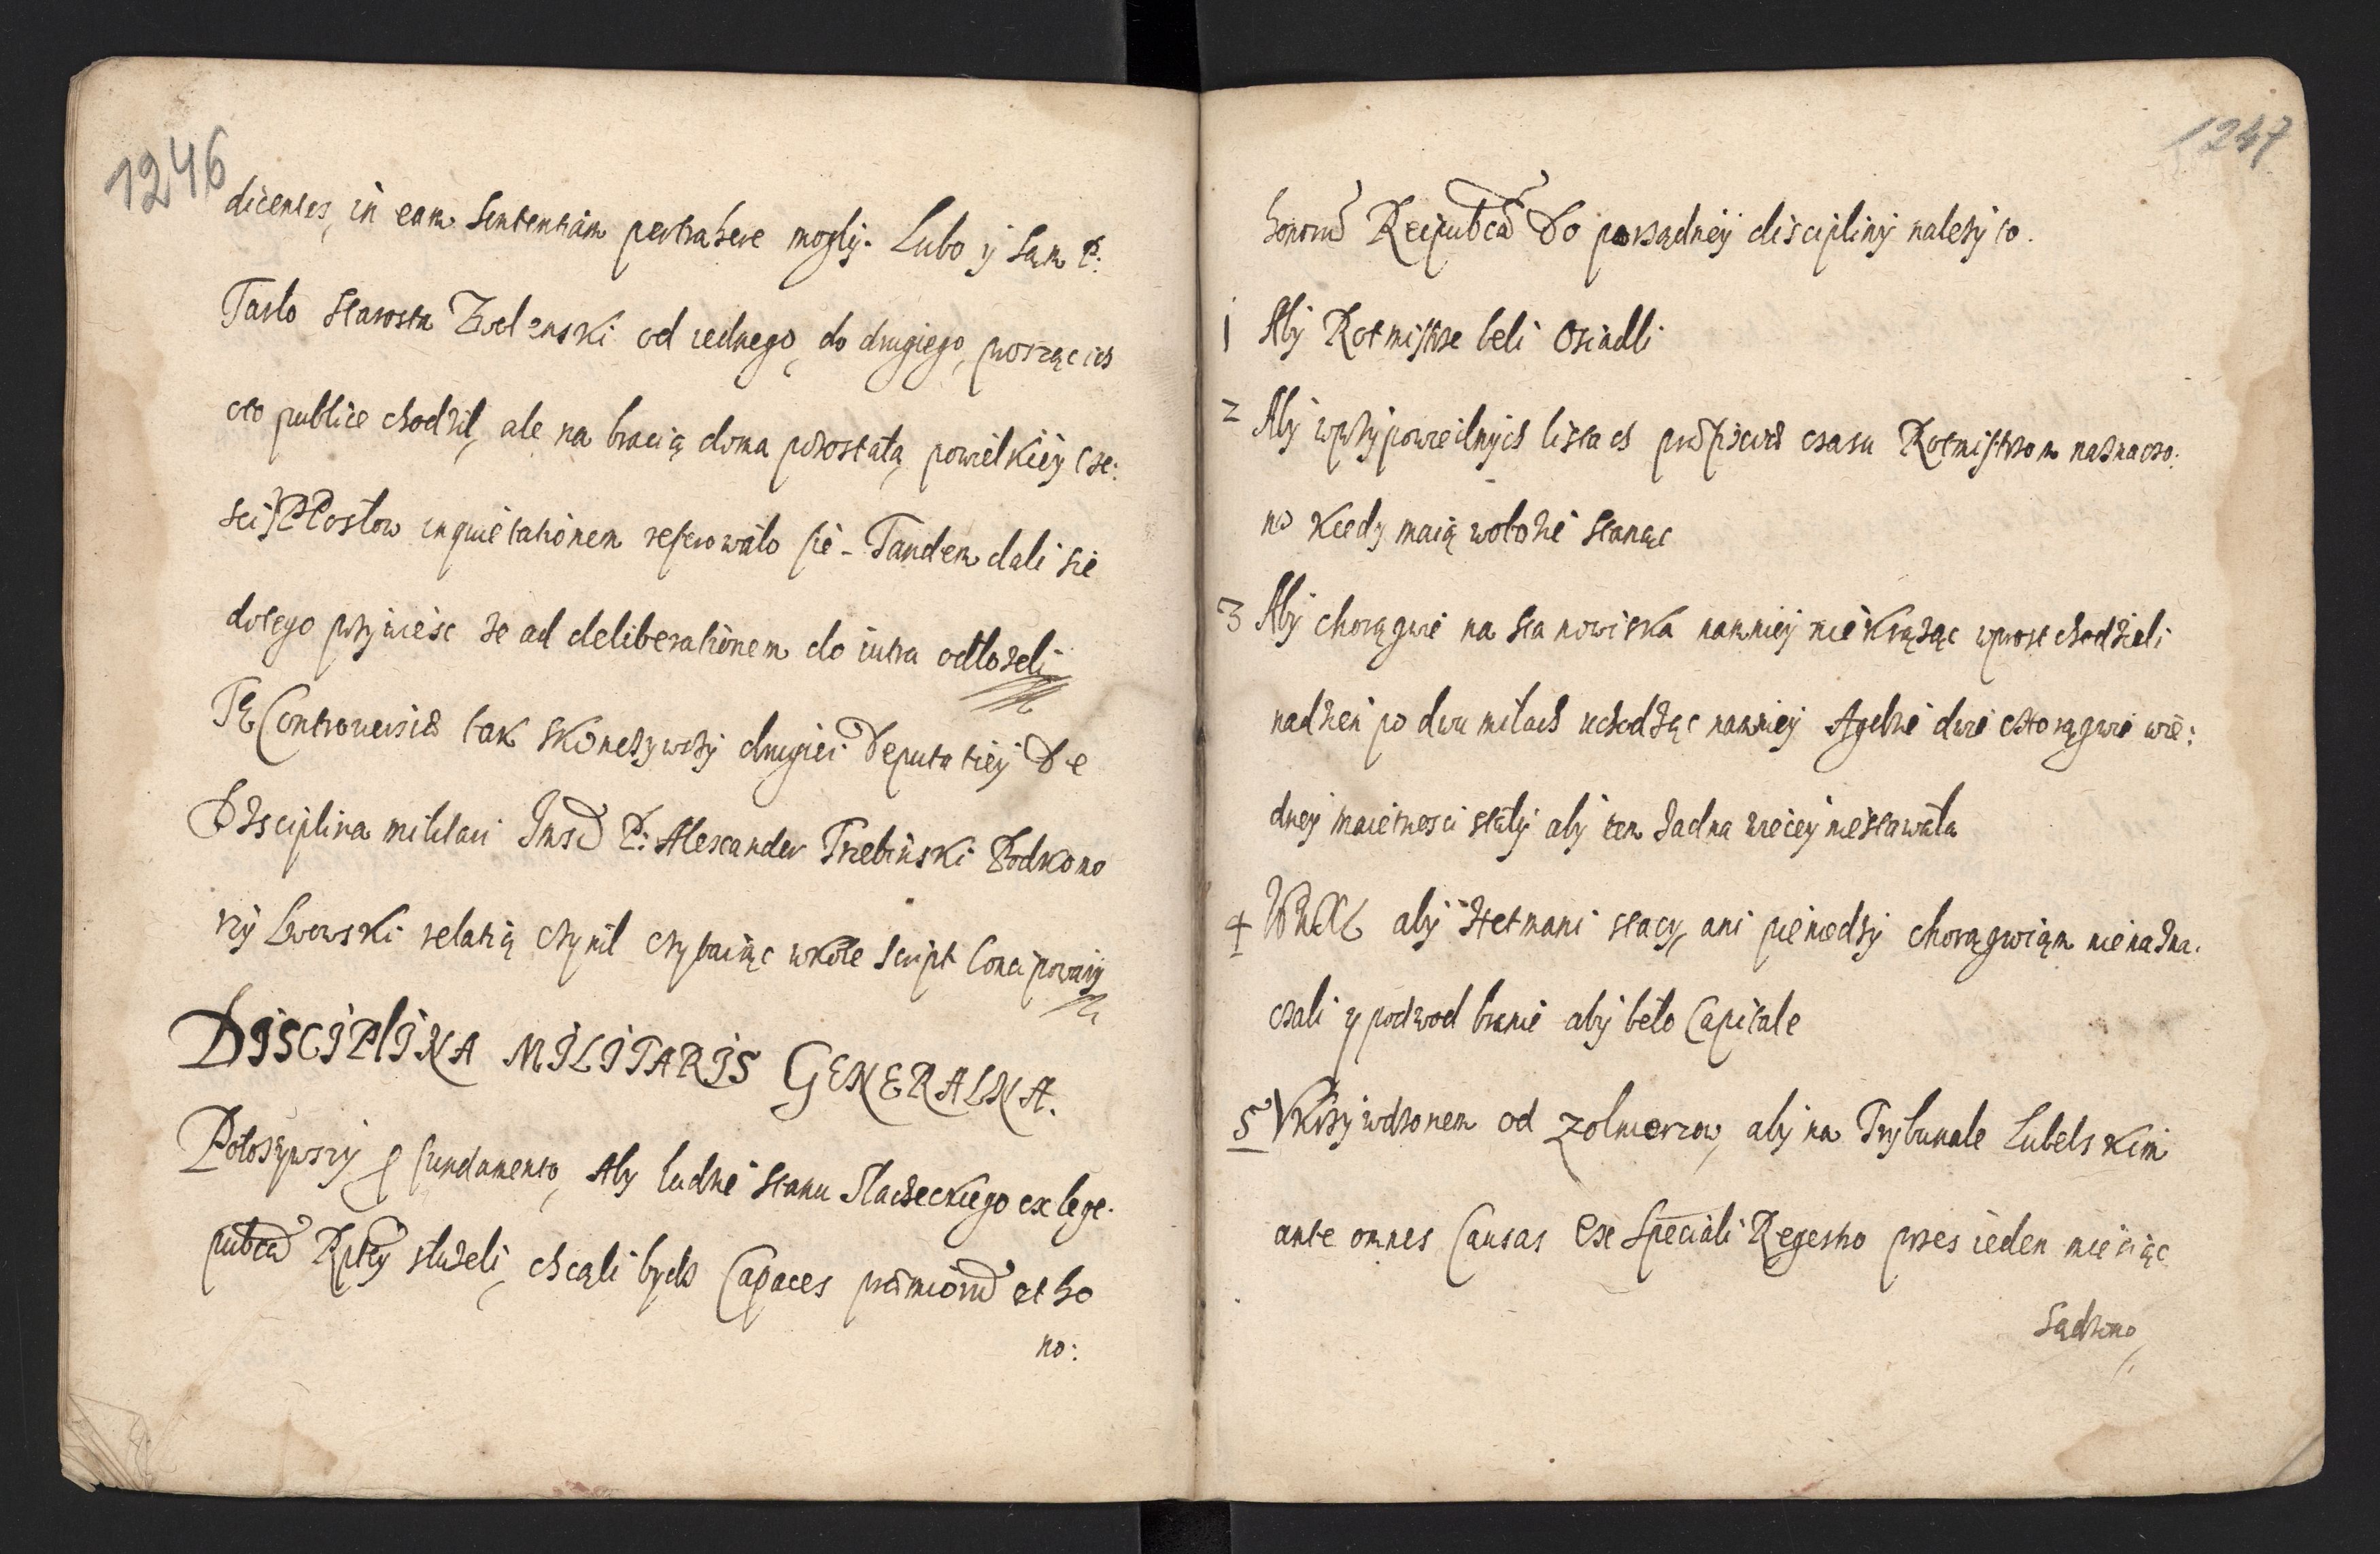 1246
dicentes, in eam sententiam pertrahere mogly. Lubo y sam P:
Tarlo Starosta Zwolenski od iednego, do drugiego, prosząc ich
oto publice chodził, ale na bracią doma pozostałą, powielkiey cze:
sci PPosłow inquietationem referowało sie - Tandem dali sie
dotego przywiesc ze ad deliberationem do iutra odłozeli
Tę Controuersią tak skonczywszy drugiei Deputatiey De
Disciplina militari Jmsc P: Alexander Trzebinski Podkomo
rzy Lwowski relatią czynił czytaiąc wkole script Concipowany
DISCIPlINA MILITARIS GENERALNA.
Położywszy fundamento, Aby ludzie stanu Slacheckiego ex lege.
publica Rptey służeli, chcąli bydz Capaces præmiorum et ho
no:
1247
honorum Reipublicæ Do porządney discipliny należy to.
1 Aby Rotmistrze beli Osiadli
2 Aby wprzypowieilnych listach præfixus czasu Rotmistrzom naznaczo:
no kiedy maią wobozie stanąc
3 Aby chorągwie na stanowiska namniey nie krążąc wprost chodzieli
nadzień po dwu milach uchodząc namniey A gdzie dwie chorągwie wie:
dney maietnosci stały aby tem żadna wiecey niestawała
4 aby Hetmani stacy, ani pieniedzy chorągwiąm nienazna.
czali y podwod branie aby beło Capitale
5 Vkrzywdzonem od zolnierzow, aby na Trybunale Lubelskim
ante omnes Causas Ex Speciali Regestro przes ieden miesiąc
sądzono,